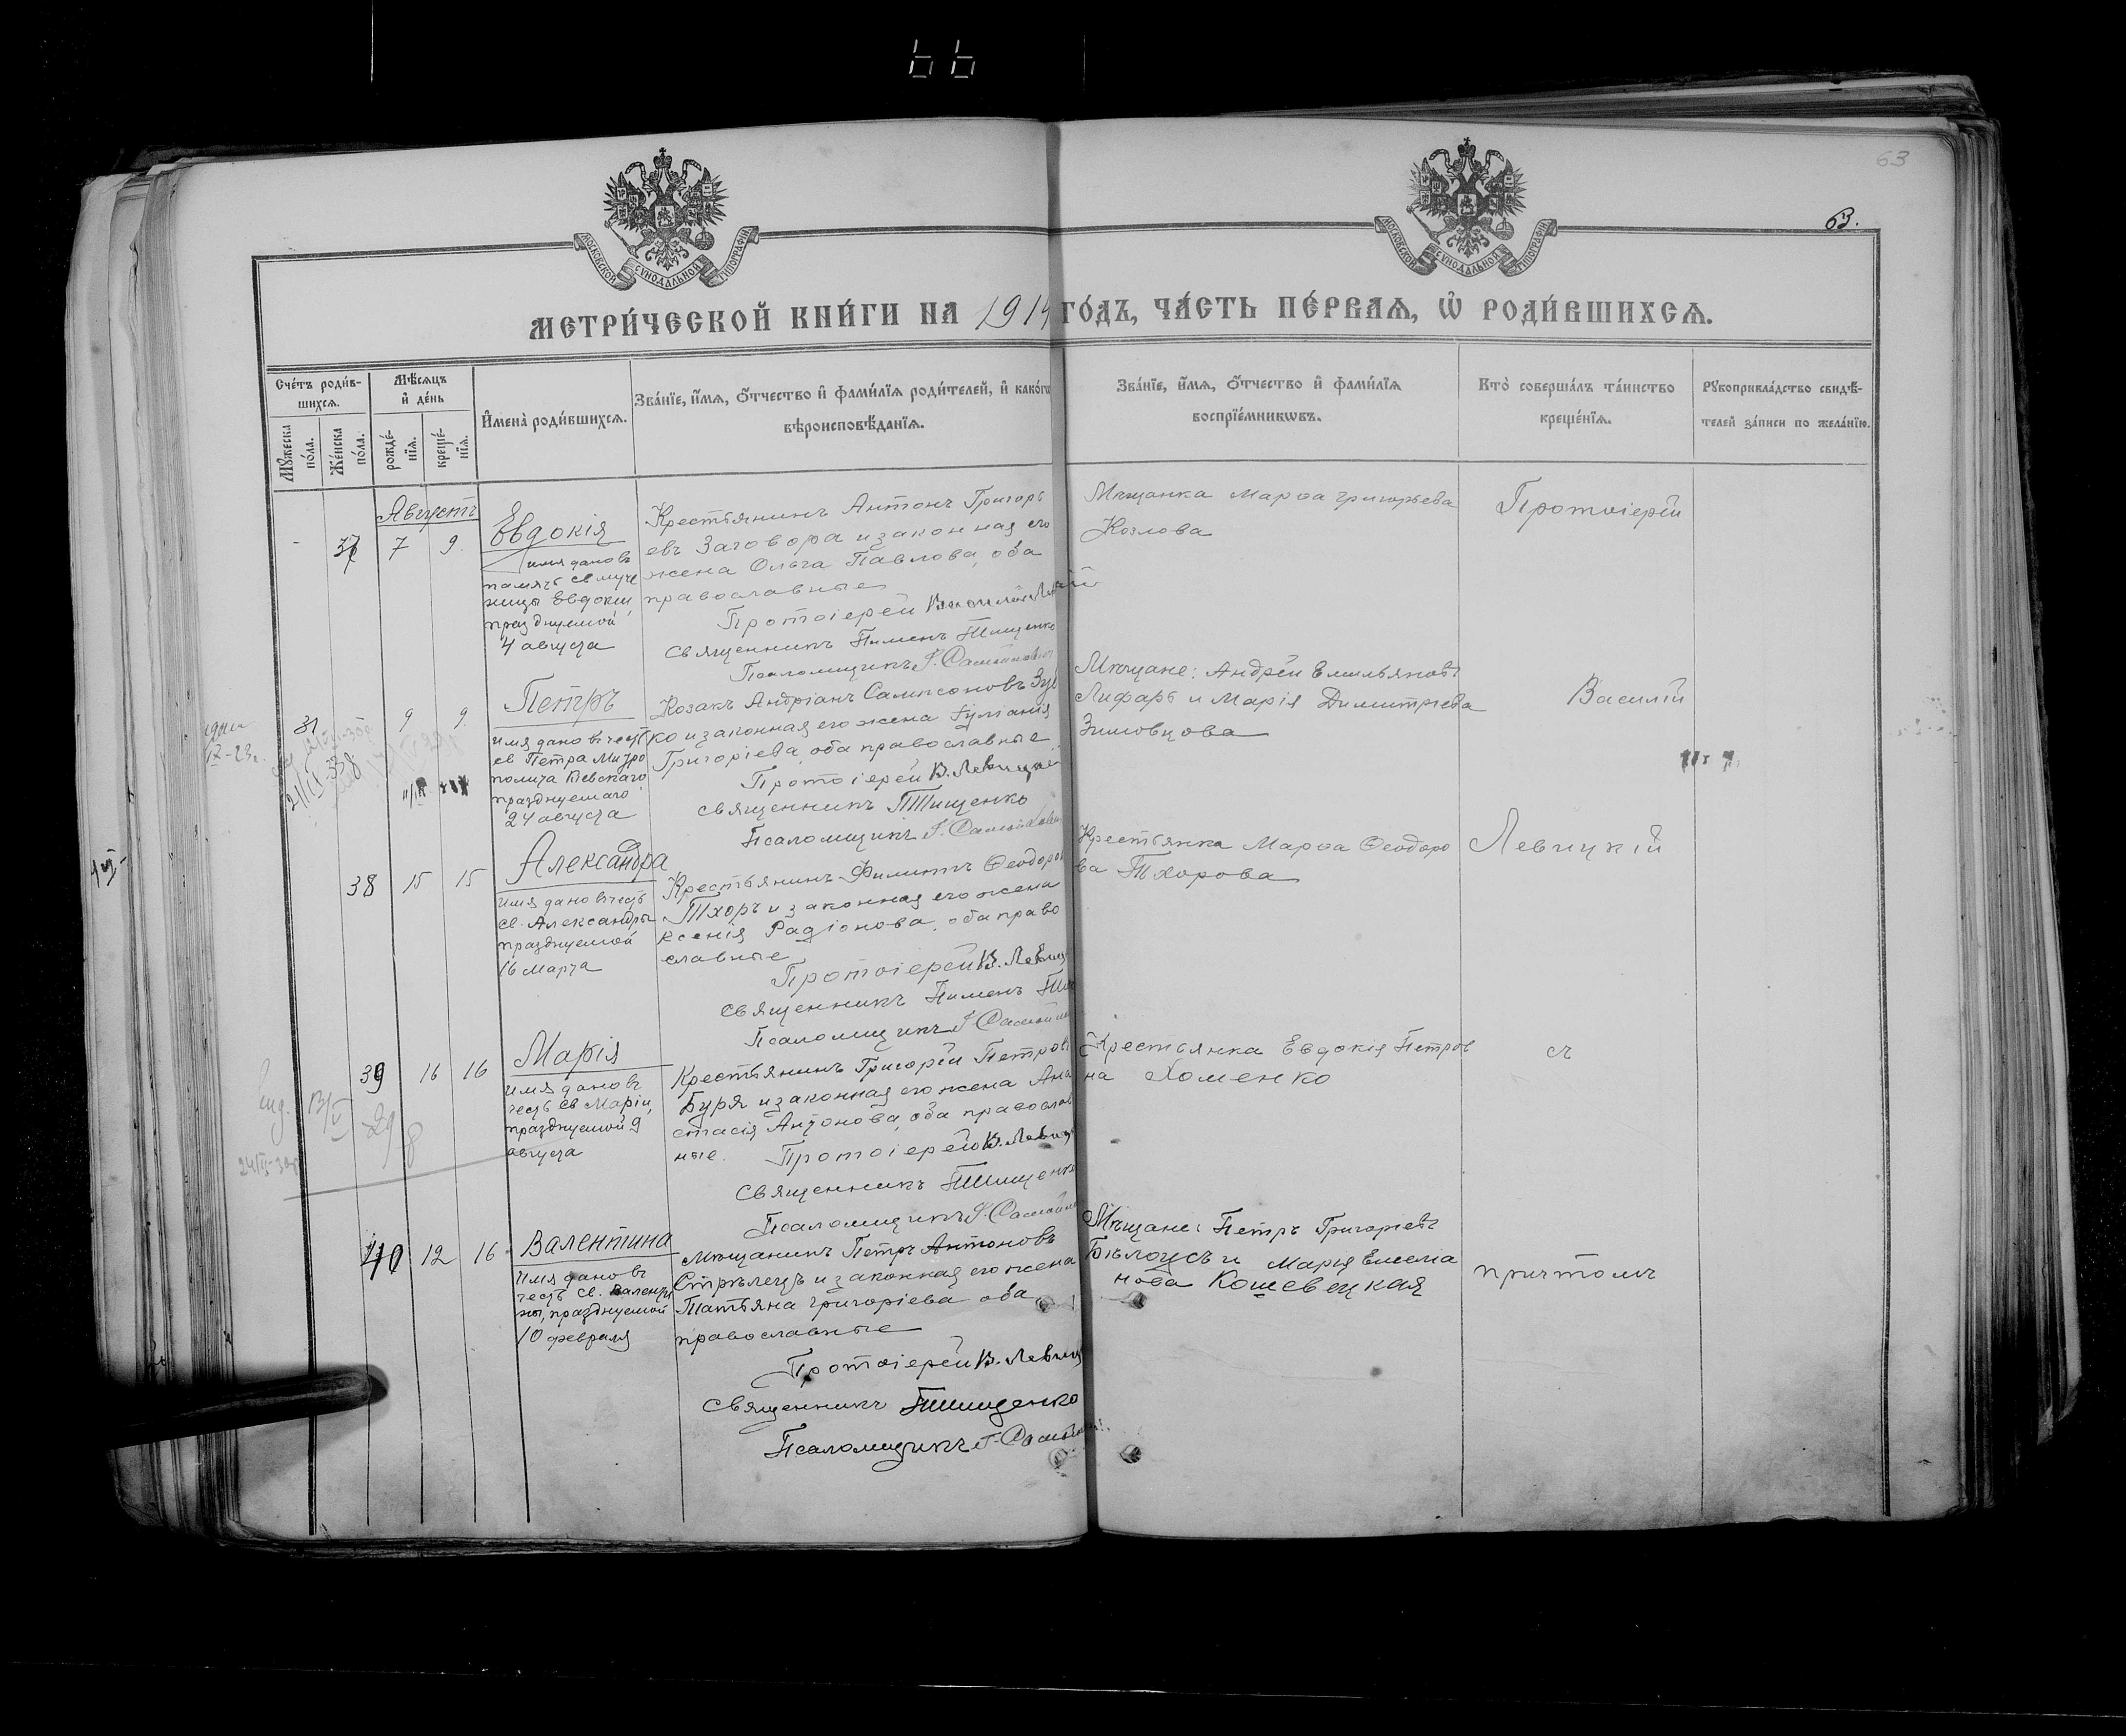 66
63
63.
МОСКОВСКОЙ СѴНОДАЛЬНОЙ ТИПОГРАФІИ
МОСКОВСКОЙ СѴНОДАЛЬНОЙ ТИПОГРАФІИ
МЕТРИ́ЧЕСКОЙ КНИ́ГИ НА 1914 ГО́ДЪ, ЧА́СТЬ ПЕ́РВАЯ, Ѡ РОДИ́ВШИХСЯ.
Сче́тъ роди́в-
шихся.
Мꙋжеска по́ла.
Же́нска по́ла.
Мѣ́сяцъ и де́нь
рожде́-нїя.
креще́-нїя.
Имена̀ роди́вшихся.
Зва́нїе, и́мя, о́тчество и фами́лїя роди́телей, и како́гѡ
вѣроисповѣ́данїя.
Зва́нїе, и́мя, о́тчество и фами́лїя
воспрїе́мникѡвъ.
Кто̀ соверша́лъ та́инство
креще́нїя.
Рꙋкоприкла́дство свидѣ́-
телей за́писи по жела́нїю.
Августъ
- 37 7 9.
Евдокія
имя дано въ
память св муче
ницы Евдокіи,
празднуемой
4 августа
Крестьянинъ Антонъ Григорь
евъ Заговора и законная его
жена Ольга Павлова, оба
православные
Протоіерей
Священникъ Пименъ Тищенко
Псаломщикъ
Мѣщанка Марѳа Григорьева
Козлова
Протоіерей
31 9 9
Петръ
имя дано въ честь
св Петра Митро
полита Кіевскаго
празднуемаго
24 августа
Козакъ Андріанъ Сампсоновъ
ко и законная его жена Іуліанія
Григоріева, оба православные
Протоіерей В. Левицкій
священникъ ПТищенко
Псаломщикъ
Мѣщане: Андрей Емельяновъ
Лифарь и Марія Димитріева
Зимовцова
Василій
38 15 15
Александра
имя дано въ честь
св. Александры
празднуемой
16 марта
Крестьянинъ Филиппъ Ѳеодоровъ
Тхоръ и законная его жена
Ксенія Радіонова, оба право
славные
Протоіерей В. Левиц
священникъ Пименъ
Псаломщикъ
Крестьянка Марѳа Ѳеодоро
ва Тхорова
Левицкій
39 16 16
Марія
имя дано въ
честь св Маріи,
празднуемой 9
августа
Крестьянинъ Григорій Петровъ
Буря и законная его жена Ана
стасія Антонова, оба православ
ные. Протоіерей В. Левиц
Священникъ ПТищенко
Псаломщикъ
Крестьянка Евдокія Петров
на Хоменко
съ
40 12 16
Валентина
Имя дано въ
честь св. Валенти
ны, празднуемой
10 февраля
Мѣщанинъ Петръ Антоновъ
Стрѣлецъ и законная его жена
Татьяна Григоріева оба
православные
Протоіерей В. Левиц
Священникъ ПТищенко
Псаломщикъ
Мѣщане: Петръ Григоріевъ
Бѣлоусъ и Марія Емелiа
нова Кошевецкая
причтомъ